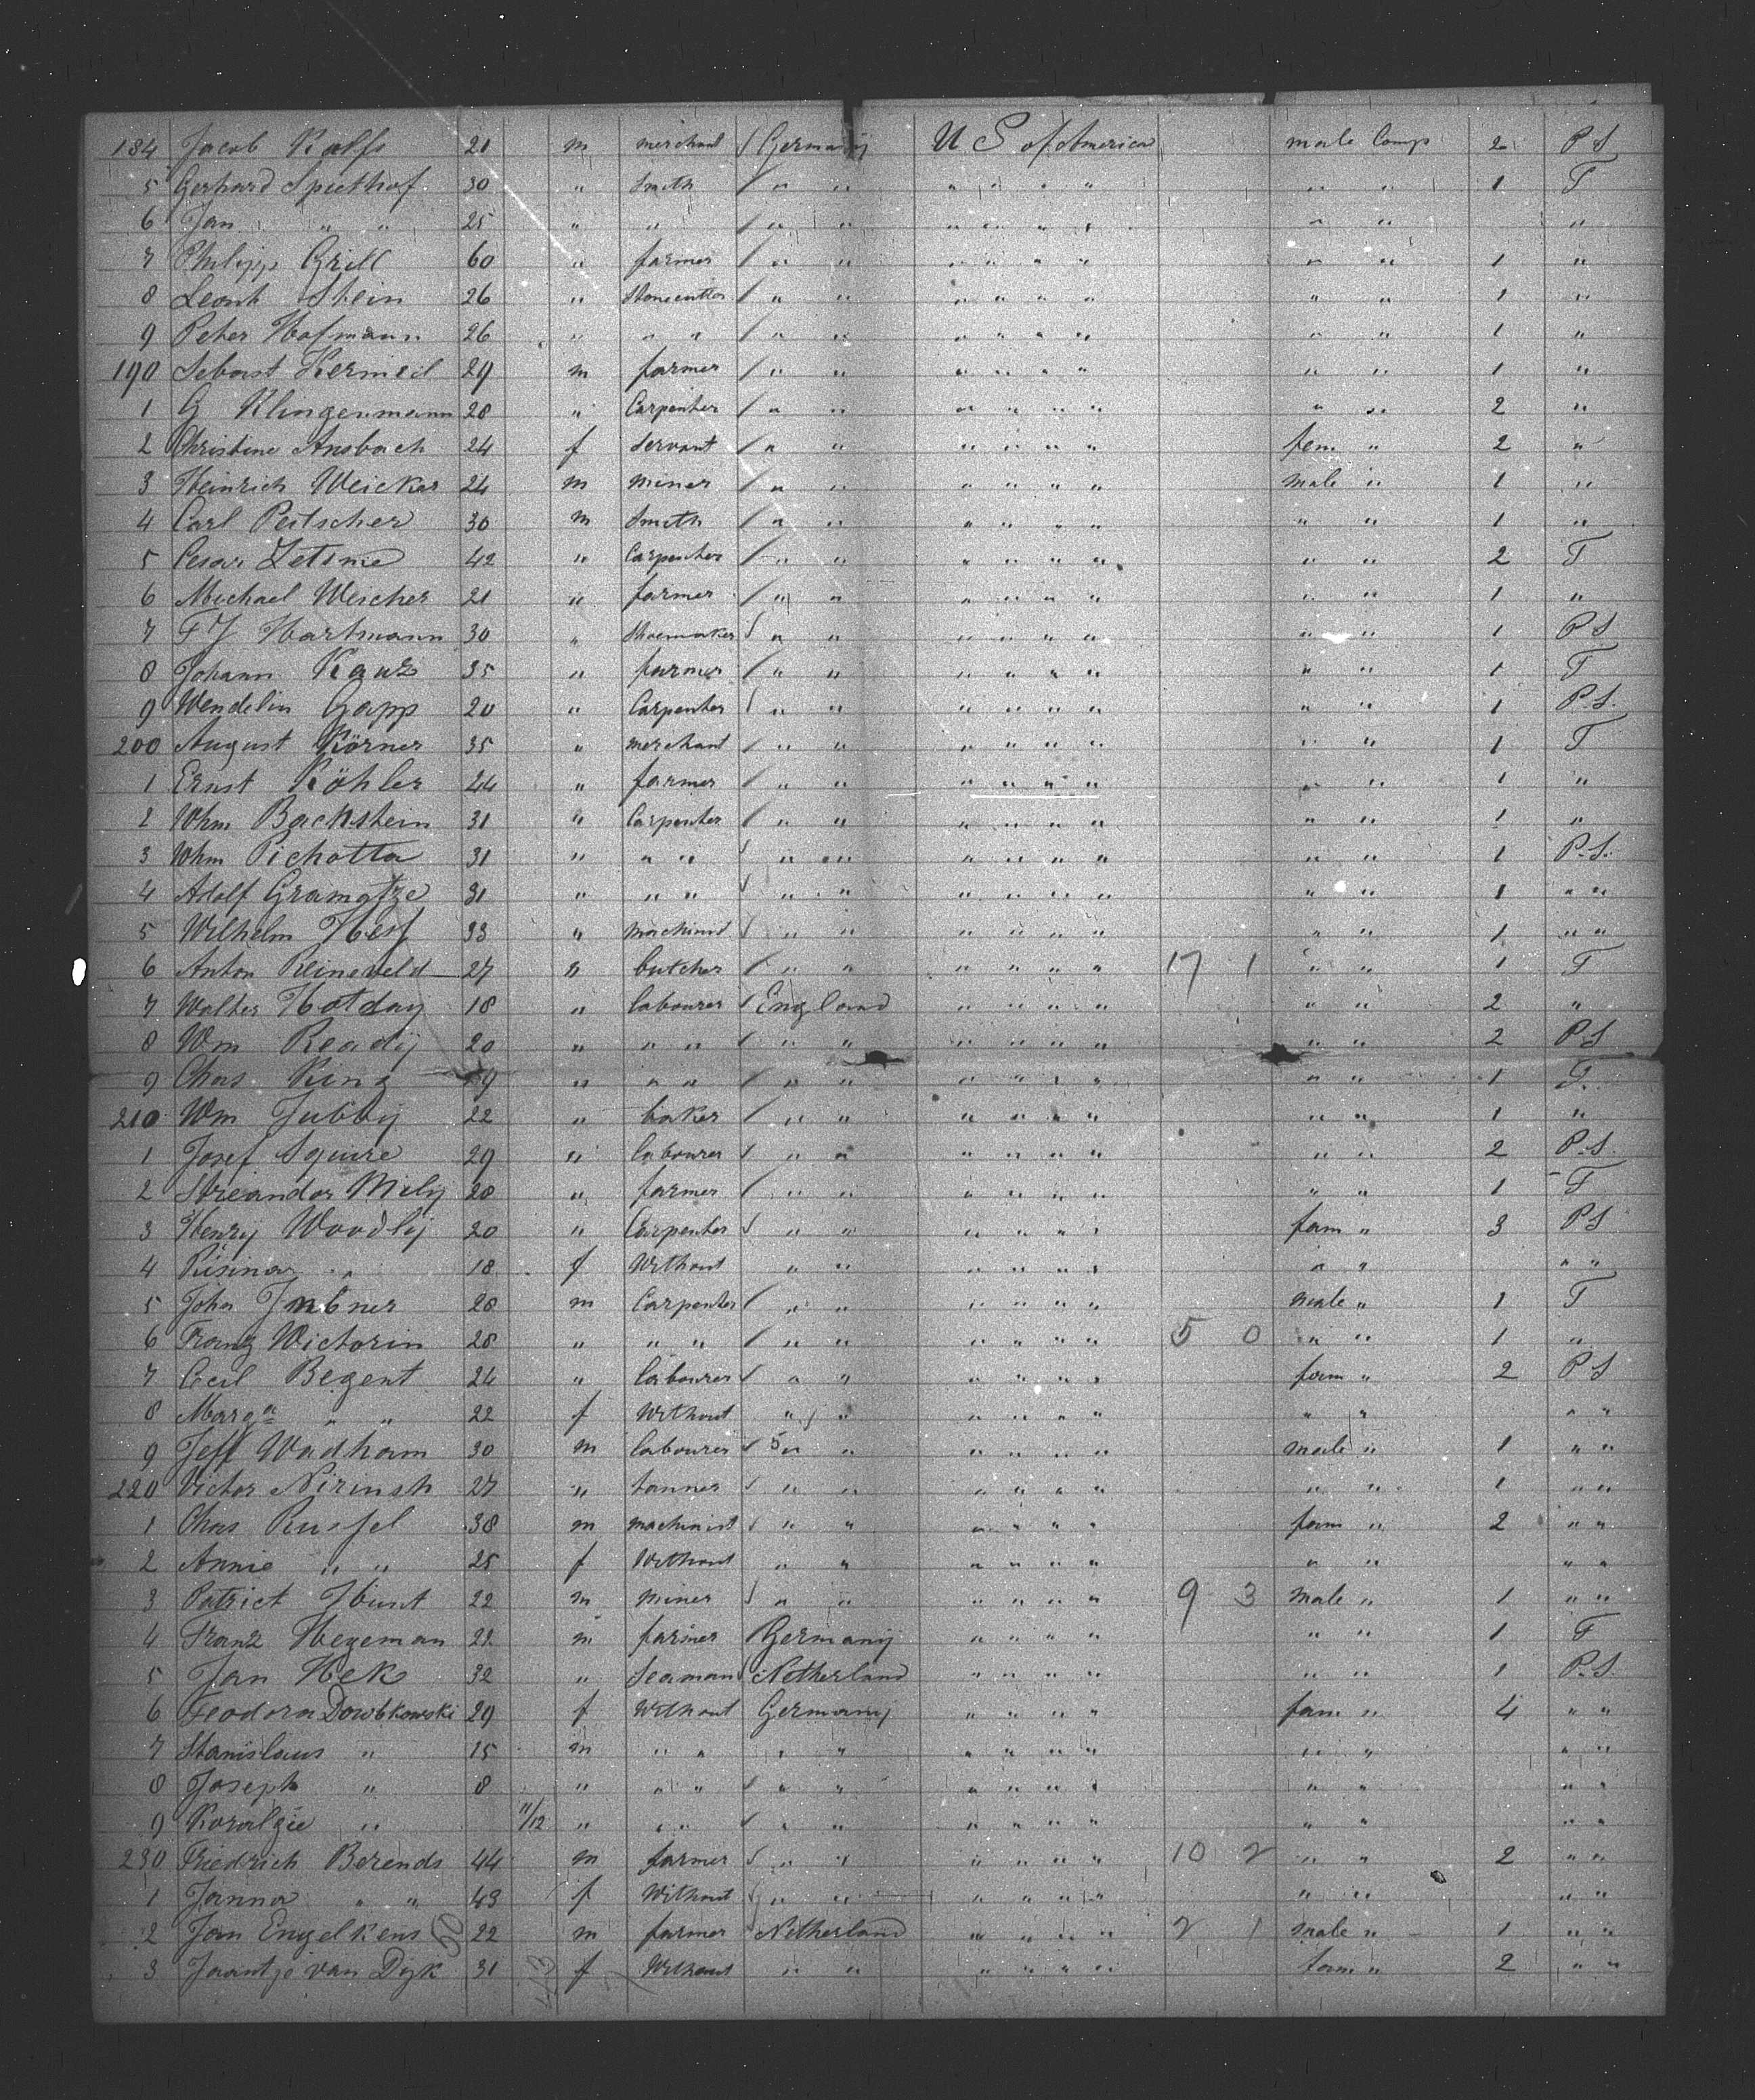 184 Jacob Ralfs 21 m merchant Germany U S of America male Comp 2 P S
5 Gerhard Spiethof 30 " Smith " " " " " " " " 1 T
6 Jan " " 25 " " " " " " " " " " "
7 Philipp Grill 60 " farmer " " " " " " " " 1 "
8 Leonh Stein 26 " Stonecutter " " " " " " " " 1 "
9 Peter Hofmann 26 " " " " " " " " " " " 1 "
190 Sebast Hermed 29 m farmer " " " " " " " " 1 "
1 G Klingenmann 28 " Carpenter " " " " " " " " 2 "
2 Christine Ansbach 24 f Servant " " " " " " fem " 2 "
3 Heinrich Weicker 24 m miner " " " " " " male " 1 "
4 Carl Peitscher 30 m Smith " " " " " " " " 1 "
5 Cesar Letsme 42 " Carpenter " " " " " " " " 2 T
6 Michael Wescher 21 " farmer " " " " " " " " 1 "
7 F J Hartmann 30 " Shoemaker " " " " " " " " 1 P S
8 Johann Kauz 35 " farmer " " " " " " " " 1 T
9 Wendelin Gapp 20 " Carpenter " " " " " " " " 1 P. S.
200 August Körner 35 " merchant " " " " " " " " 1 T
1 Ernst Köhler 44 " farmer " " " " " " " " 1 "
2 Whm Backstein 31 " Carpenter " " " " " " " " 1 "
3 Whm Pichotta 31 " " " " " " " " " " " 1 P. S.
4 Adolf Gramatze 31 " " " " " " " " " " " 1 " "
5 Wilhelm Hess 33 " machinist " " " " " " " " 1 " "
6 Anton Reineveld 27 " butcher " " " " " " 17 1 " " 1 T
7 Walter Hotday 18 " labourer England " " " " " " 2 "
8 Wm Ready 20 " " " " " " " " " " " 2 P S
9 Chas King 19 " " " " " " " " " " " 1 T.
210 Wm Jubby 22 " baker " " " " " " " " 1 "
1 Josef Squire 29 " labourer " " " " " " " " 2 P. S.
2 Streander Mily 28 " farmer " " " " " " " " 1 T
3 Henry Woodly 20 " Carpenter " " " " " " fam " 3 P S
4 Risina " 18 f Without " " " " " " " " " "
5 John Imbner 28 m Carpenter " " " " " " male " 1 T
6 Franz Wictorin 28 " " " " " " " " " 5 0 " " 1 "
7 Cecil Begent 24 " labourer " " " " " " fam " 2 P S
8 Marga " " 22 f Without " " " " " " " " " "
9 Jeff Wadham 30 m labourer 5 " " " " " " male " 1 " "
220 Victor Nirinsh 27 " tanner " " " " " " " " 1 " "
1 Chas Rusfel 38 m machinist " " " " " " fam " 2 " "
2 Annie " " 25 f Without " " " " " " " " " "
3 Patrict Hunt 22 m miner " " " " " " 9 3 male " 1 " "
4 Franz Hegeman 21 m farmer Germany " " " " " " 1 T
5 Jan Hek 32 " Seaman Netherland " " " " " " 1 P. S.
6 Feodora Dowbkowski 29 f Without Germany " " " " fam " 4 " "
7 Stanislaus " 15 m " " " " " " " " " " " "
8 Joseph " 8 " " " " " " " " " " " " "
9 Koralzie " 11/12 " " " " " " " " " " " " "
230 Friedrich Berends 44 m farmer " " " " " " 10 2 " " 2 " "
1 Janna " " 43 f Without " " " " " " " " " "
2 Jan Engelkens 50 22 m farmer Netherland " " " " 2 1 male " 1 " "
3 Jaantje van Dyk 31 f Without " " " " " " fam " 2 " "